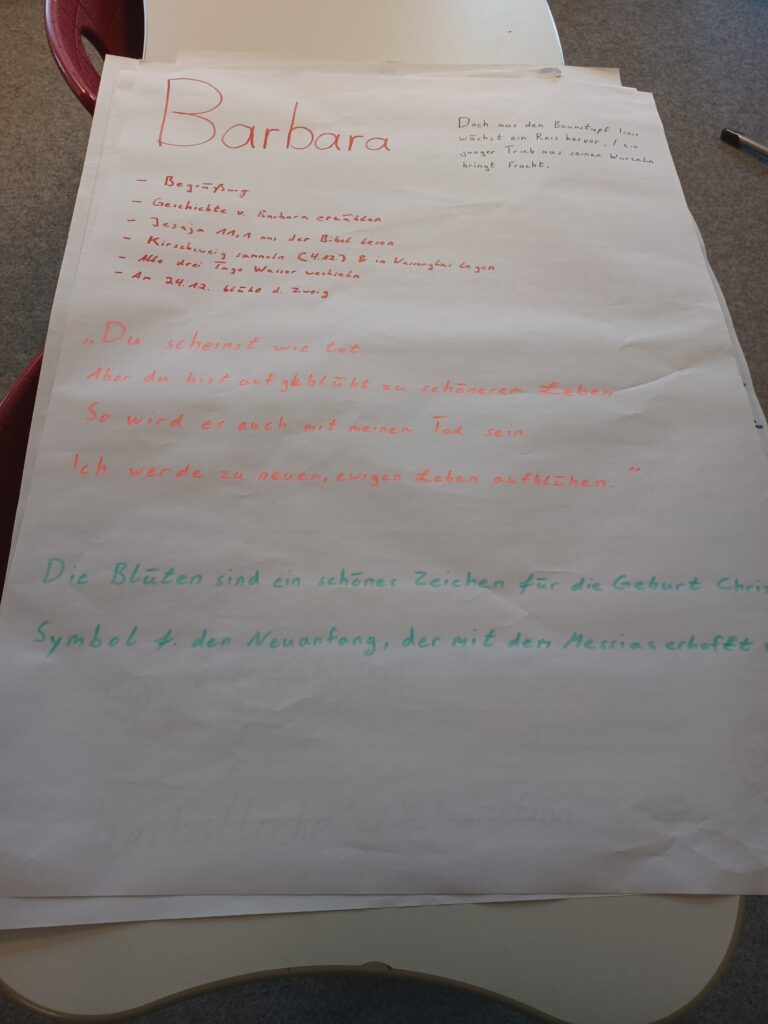 Barbara
Doch aus dem Baumstupf Isais
wächst ein Reis hervor, / ein
junger Trieb aus seinen Wurzeln
bringt Frucht.
- Begrüßung
- Geschichte v. Barbara erzählen
- Jesaja 11,1 aus der Bibel lesen
- Kirschzweig sammeln (4.12) & in Wasserglas legen
- Alle drei Tage Wasser wechseln
- Am 24.12. blüht d. Zweig
„Du scheinst wie tot.
Aber du bist aufgeblüht zu schönerem Leben.
So wird es auch mit meinem Tod sein.
Ich werde zu neuem, ewigen Leben aufblühen.“
Die Blüten sind ein schönes Zeichen für die Geburt Chris
Symbol f. den Neuanfang, der mit dem Messias erhofft
Herbstliche